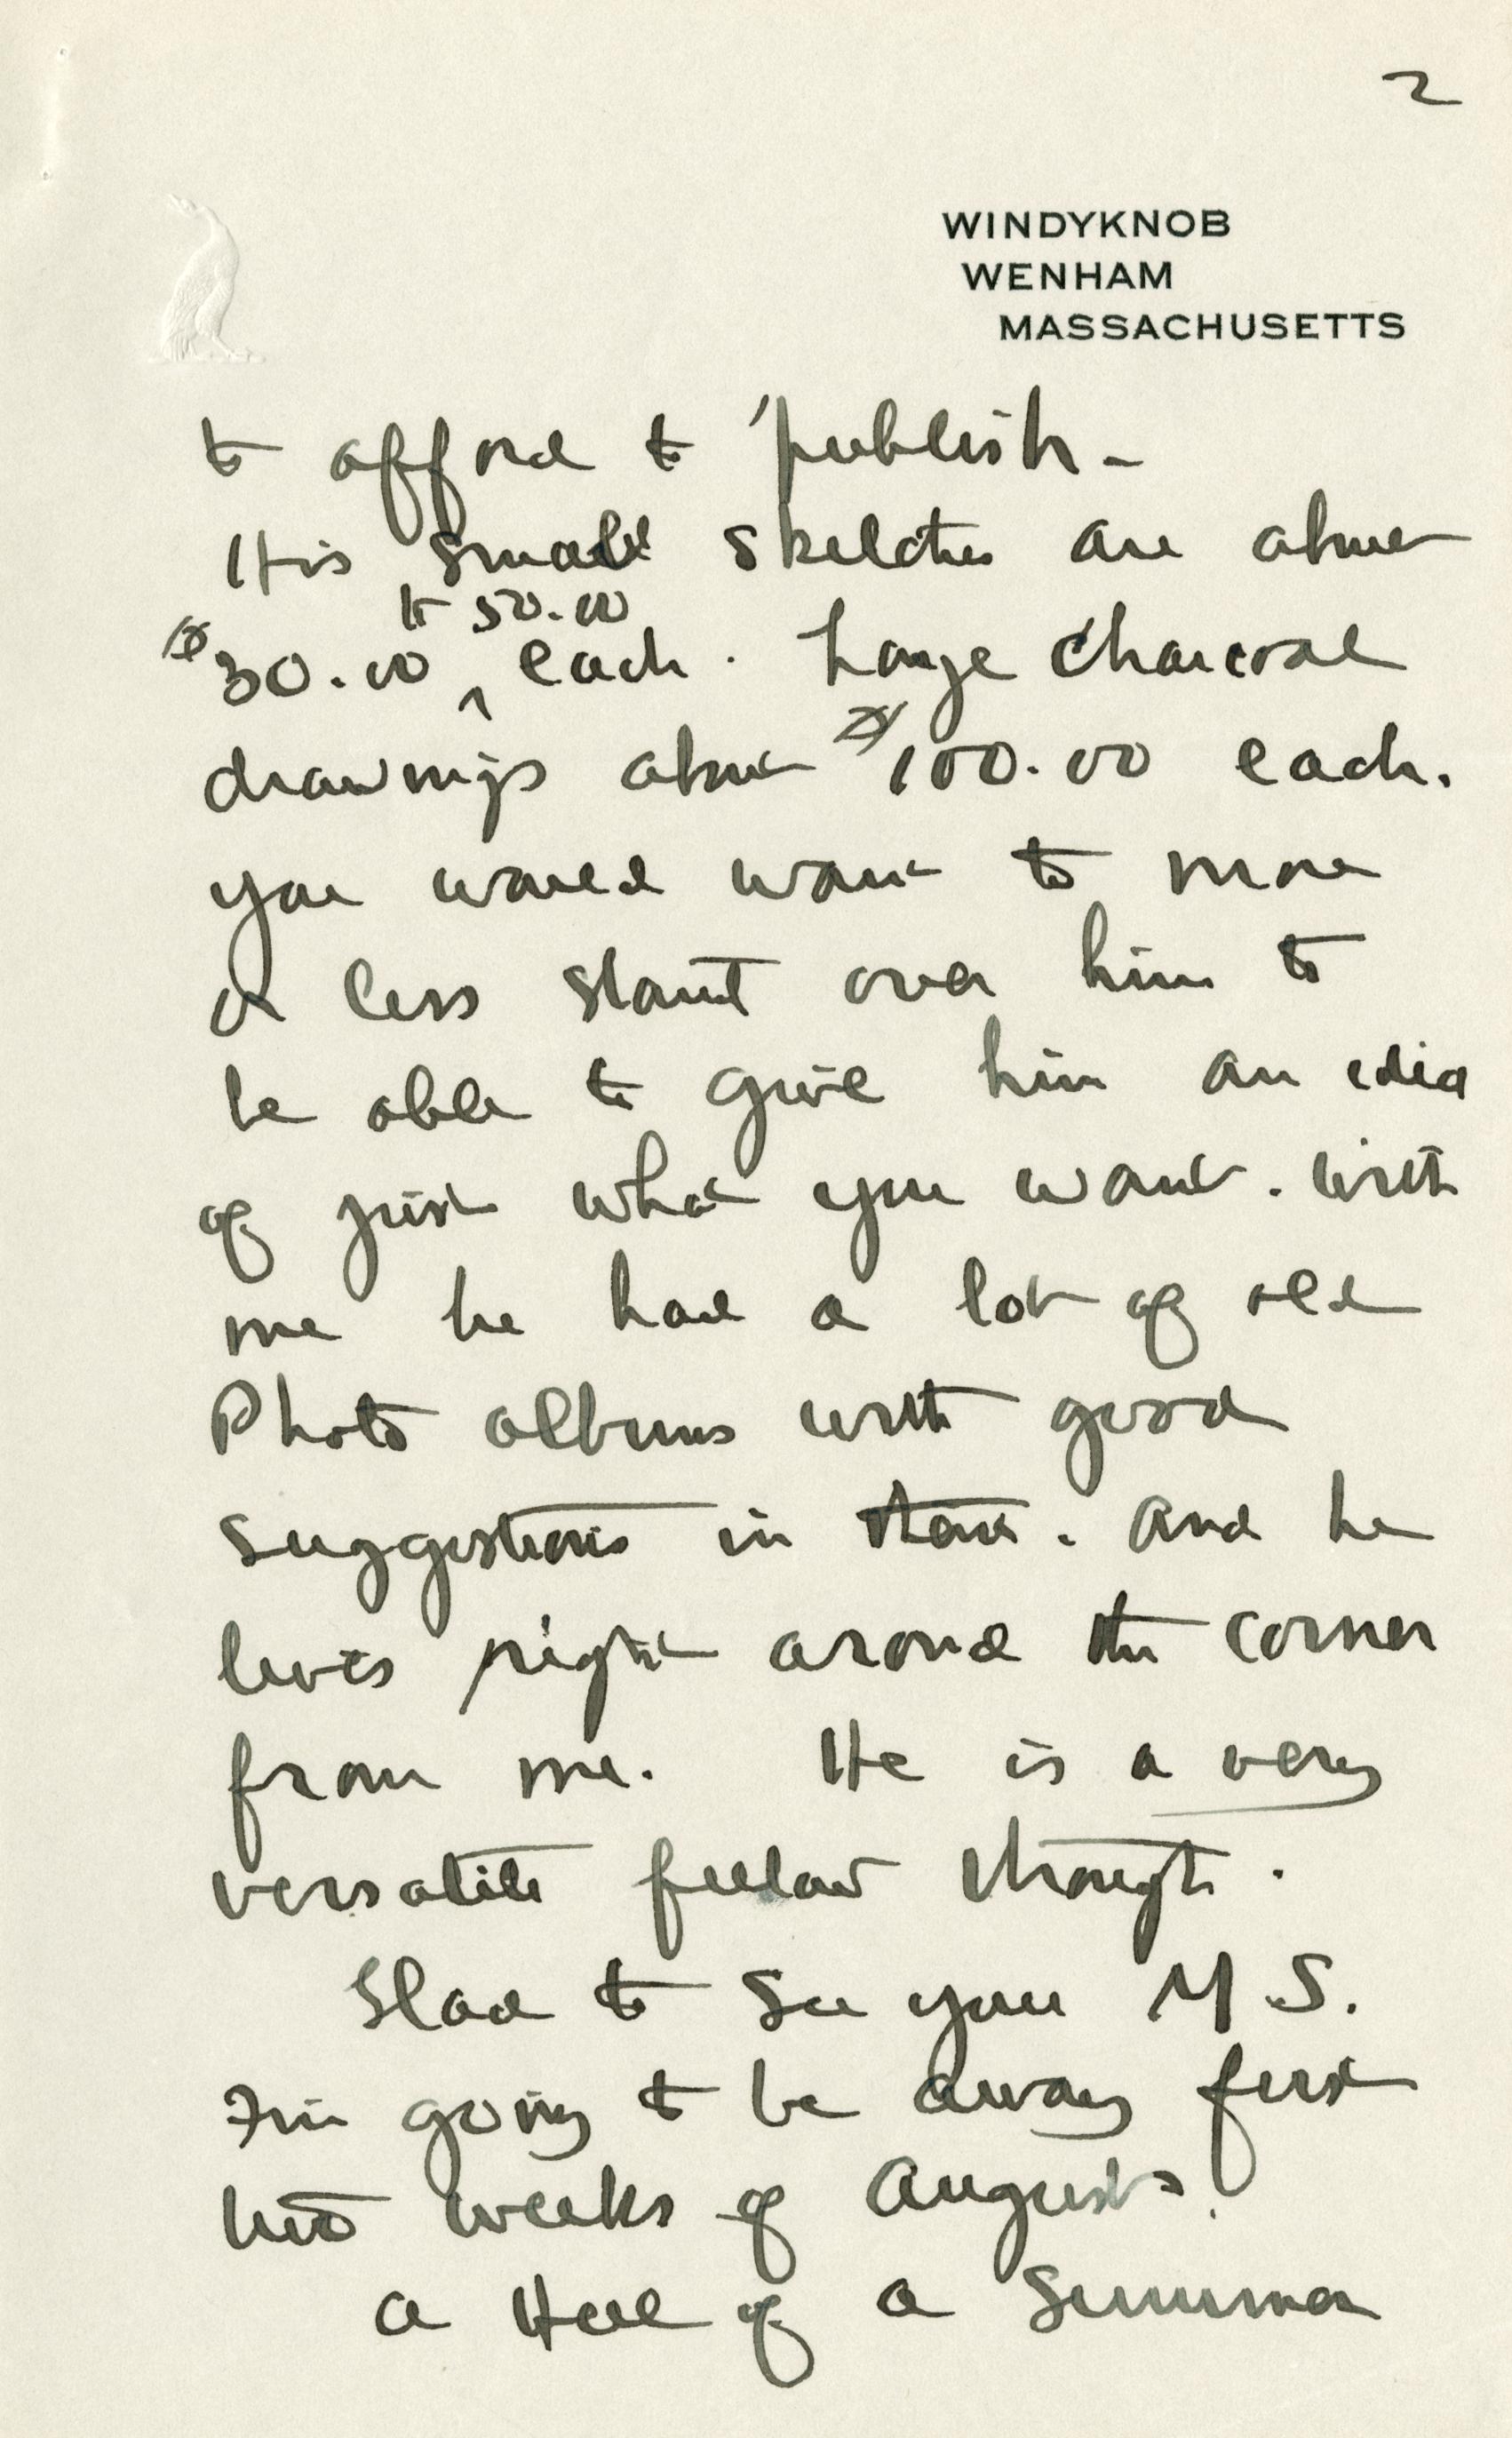 2
WINDYKNOB
WENHAM
MASSACHUSETTS
to afford to publish -
His small sketches are about
to 50.00
$30.00 ^ each. Large charcoal
drawings about $100.00 each.
you would want to more
or less stand over him to
be able to give him an idea
of just what you want. With
me he had a lot of old
Photo albums with good
suggestions in them. And he
lives right around the corner
from me. He is a very
versatile fellow though.
Glad to see your M.S.
I'm going to be away first
two weeks of August.
a Hell of a Summer